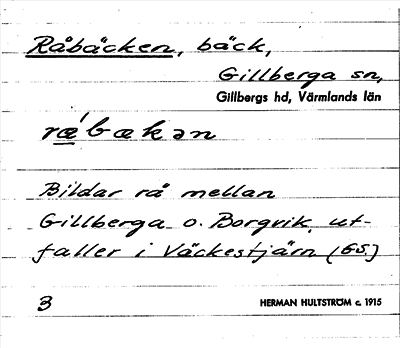 Råbäcken, bäck,
Gillberga sn,
Gillbergs hd, Värmlands län
rǽbækən
Bildar rå mellan
Gillberga o. Borgvik, ut-
faller i Väckestjärn (GS.)
3
HERMAN HULTSTRÖM c. 1915